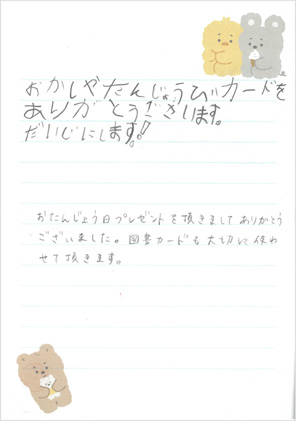 おかしやたんじょうびカードを
ありがとうございます。
だいじにします!!
おたんじょう日プレゼントを頂きましてありがとう
ございました。図書カードも大切に使わ
せて頂きます。